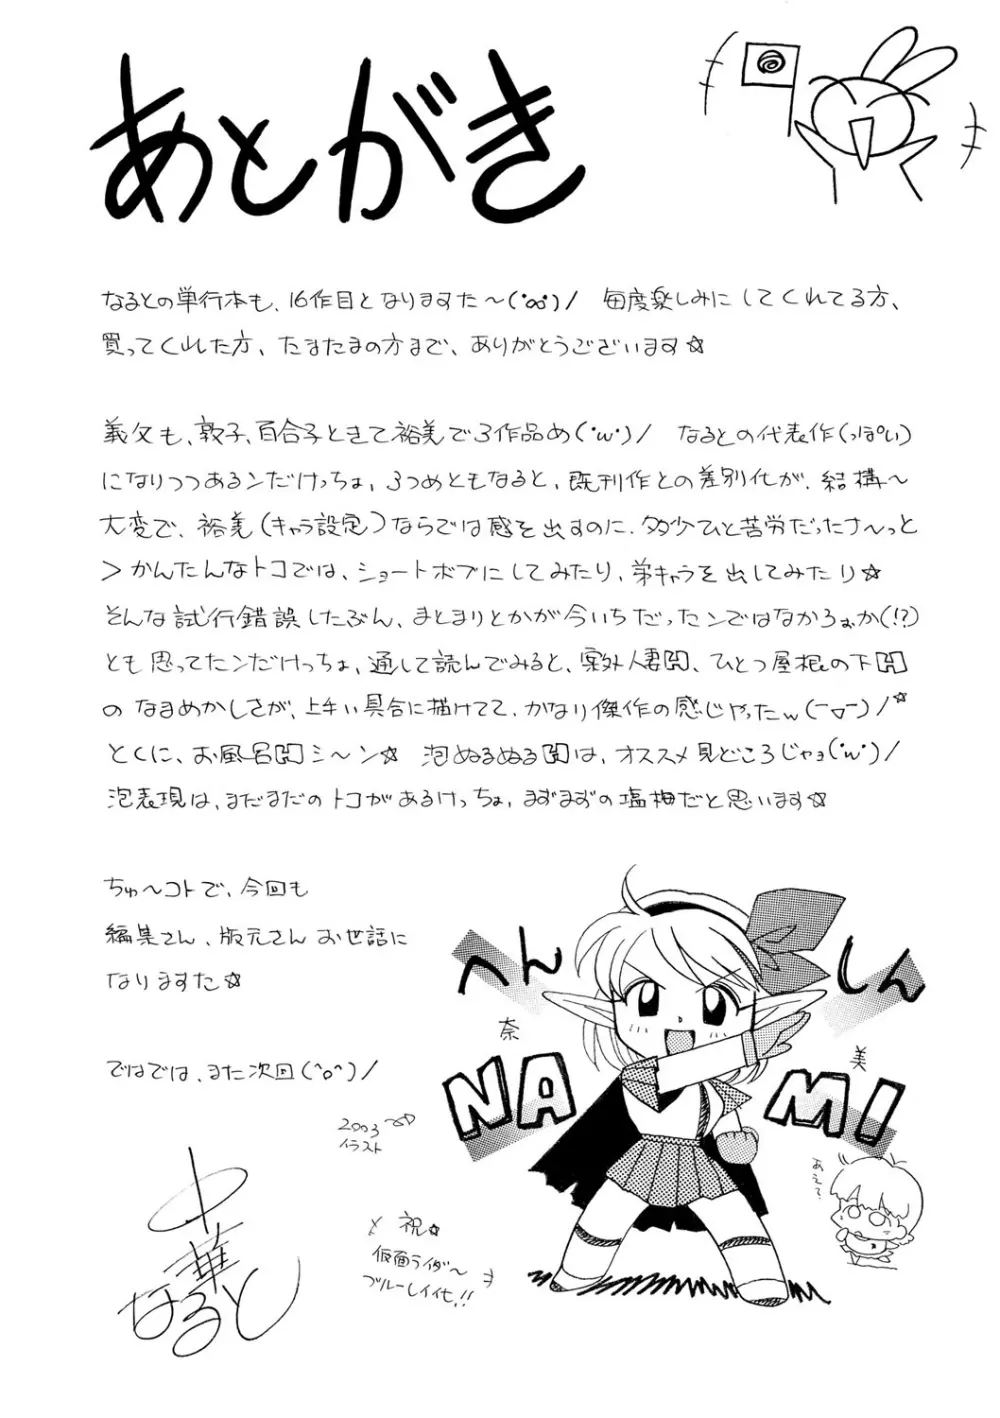 あとがき
なるとの単行本も、16作目となりますた～(°∞°)/ 毎度楽しみにしてくれてる方、
買ってくれた方、たまたまの方まで、ありがとうございます☆
義父も、敦子、百合子ときて裕美で3作品め(°w°)/ なるとの代表作(っぽい)
になりつつあるンだけっちょ、3つめともなると、既刊作との差別化が、結構～
大変で、裕美(キャラ設定)ならでは感を出すのに、多少ひと苦労だったさ～っと
>かんたんなトコでは、ショートボブにしてみたり、弟キャラを出してみたり☆
そんな試行錯誤したぶん、まとまりとかが今いちだったンではなかろぉか(!?)
とも思ってたンだけっちょ、通して読んでみると、案外人妻H、ひとつ屋根の下H
のなまめかしさが、上手い具合に描けてて、かなり傑作の感じやったw(￣▽￣)/☆
とくに、お風呂Hシ～ン☆ 泡ぬるぬるHは、オススメ見どころじゃョ(°w°)/
泡表現は、まだまだのトコがあるけっちょ、まずまずの塩梅だと思います☆
ちゅ～コトで、今回も
編集さん、版元さんお世話に
なりますた☆
ではでは、また次回(^o^)/
へん
しん
奈
美
NA
MI
2003
イラスト
あえて?
祝☆
仮面ライダ～
ブルーレイ化!!
中華
なると